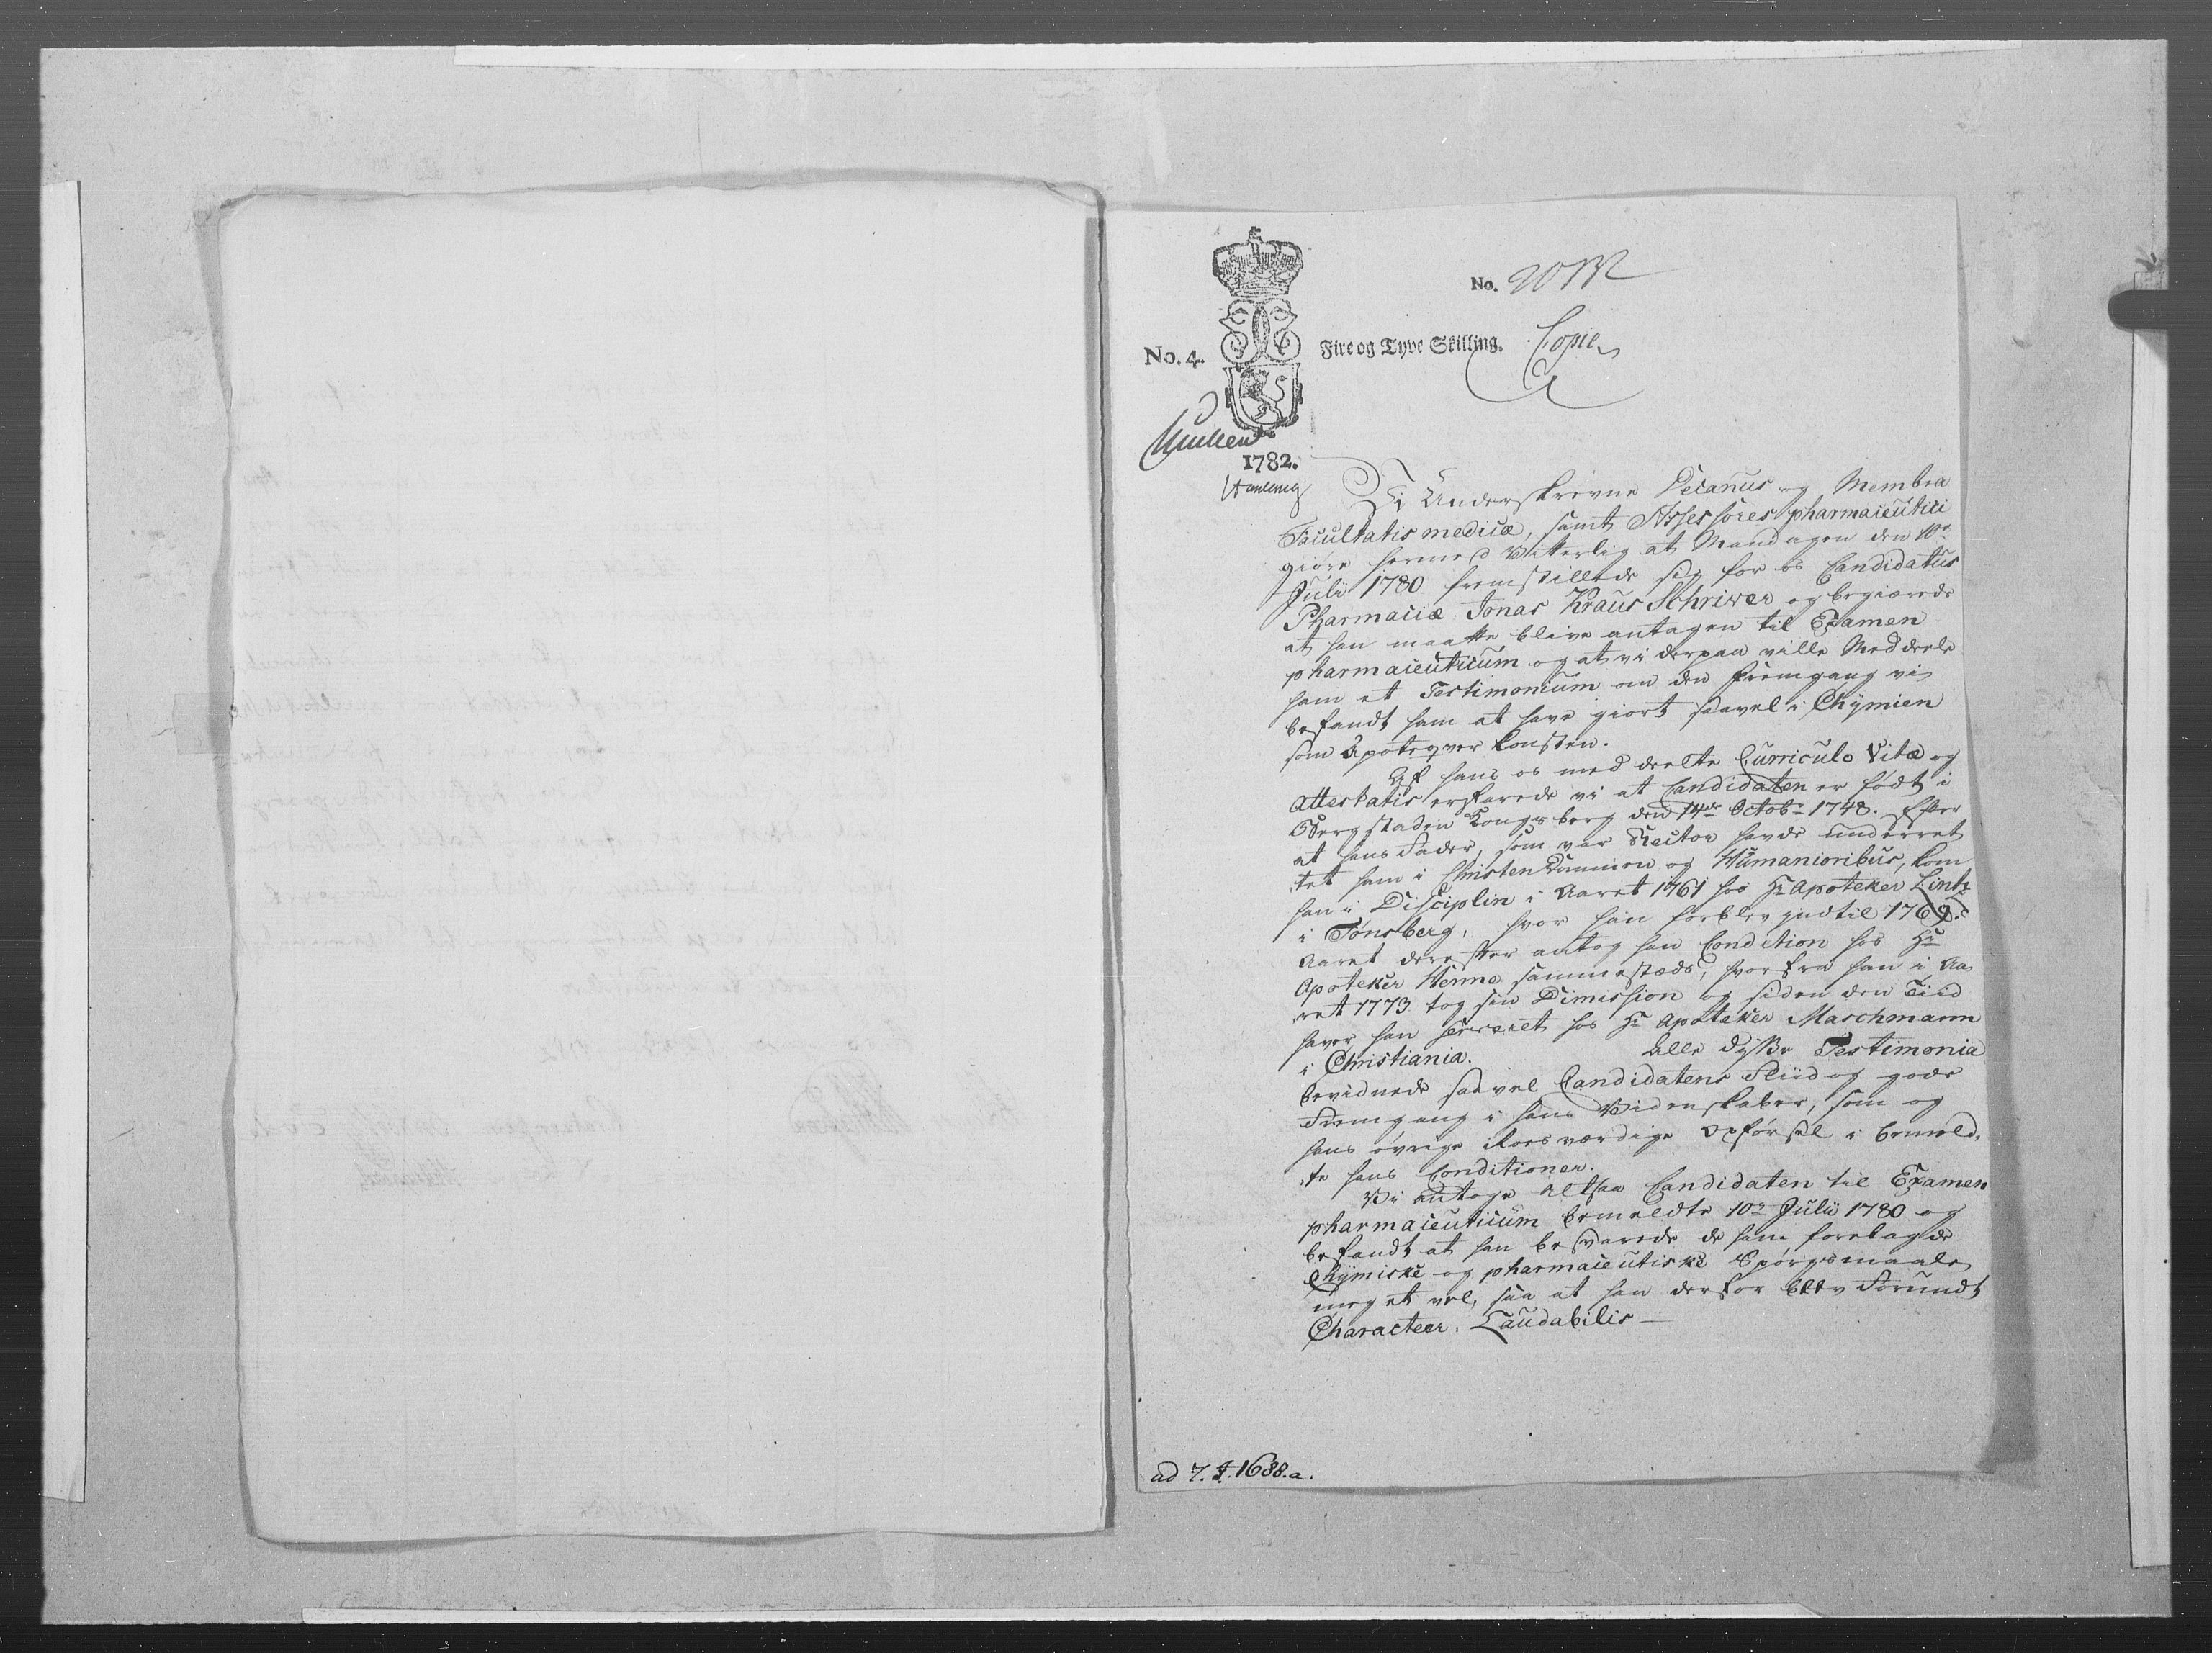 No.
No. 4. Fire og Tyve Skilling. Copie
1782.
Vi Underskrevne Decanus og Membra
Facultatis medicæ, samt Assessores pharmaceutici
giöre hermed Vitterlig at Mandagen den 10de
Julii 1780 fremstillede sig for os Candidatus
Pharmaciæ Jonas Kraus Schriwer og begiærede
at han maatte blive antagen til Examen
pharmaceuticum og at vi derpaa ville Meddeele
ham et Testimonium om den Fremgang vi
befandt ham at have giort saavel i Chymien
som Apoteqver Konsten.
Af hans os meddeelte Curriculo Vitæ og
Attestatis erfarede vi at Candidaten er födt i
Bergstaden Kongsberg den 14de Octobr 1748. Efter
at hans Fader, som var Rector havde underret
tet ham i Christendommen og Humanioribus, kom
han i Disciplin i Aaret 1761 hos Hr Apoteker Lintz
i Tonsberg, hvor han forblev indtil 1769.
Aaret derefter antog han Condition hos Hr
Apoteker Henne sammestæds, hvorfra han i Aa
ret 1773 tog sin Dimission og siden den Tiid
haver han serveret hos Hr Apoteker Maschmann
i Christiania. Alle disse Testimonia
bevidnede saavel Candidatens Fliid og gode
Fremgang i hans Videnskaber, som og
hans övrige Roesværdige Opförsel i bemeld,
te hans Conditioner.
Vi antoge altsaa Candidaten til Examen
pharmaceuticum bemeldte 10de Julii 1780 og
befandt at han besvarede de ham forelagde
Chymiske og pharmaceutiske Spörgsmaale
meget vel, saa at han derfor blev Forundt
Characteer. Laudabilis —
ad 7. J. 1688.a.